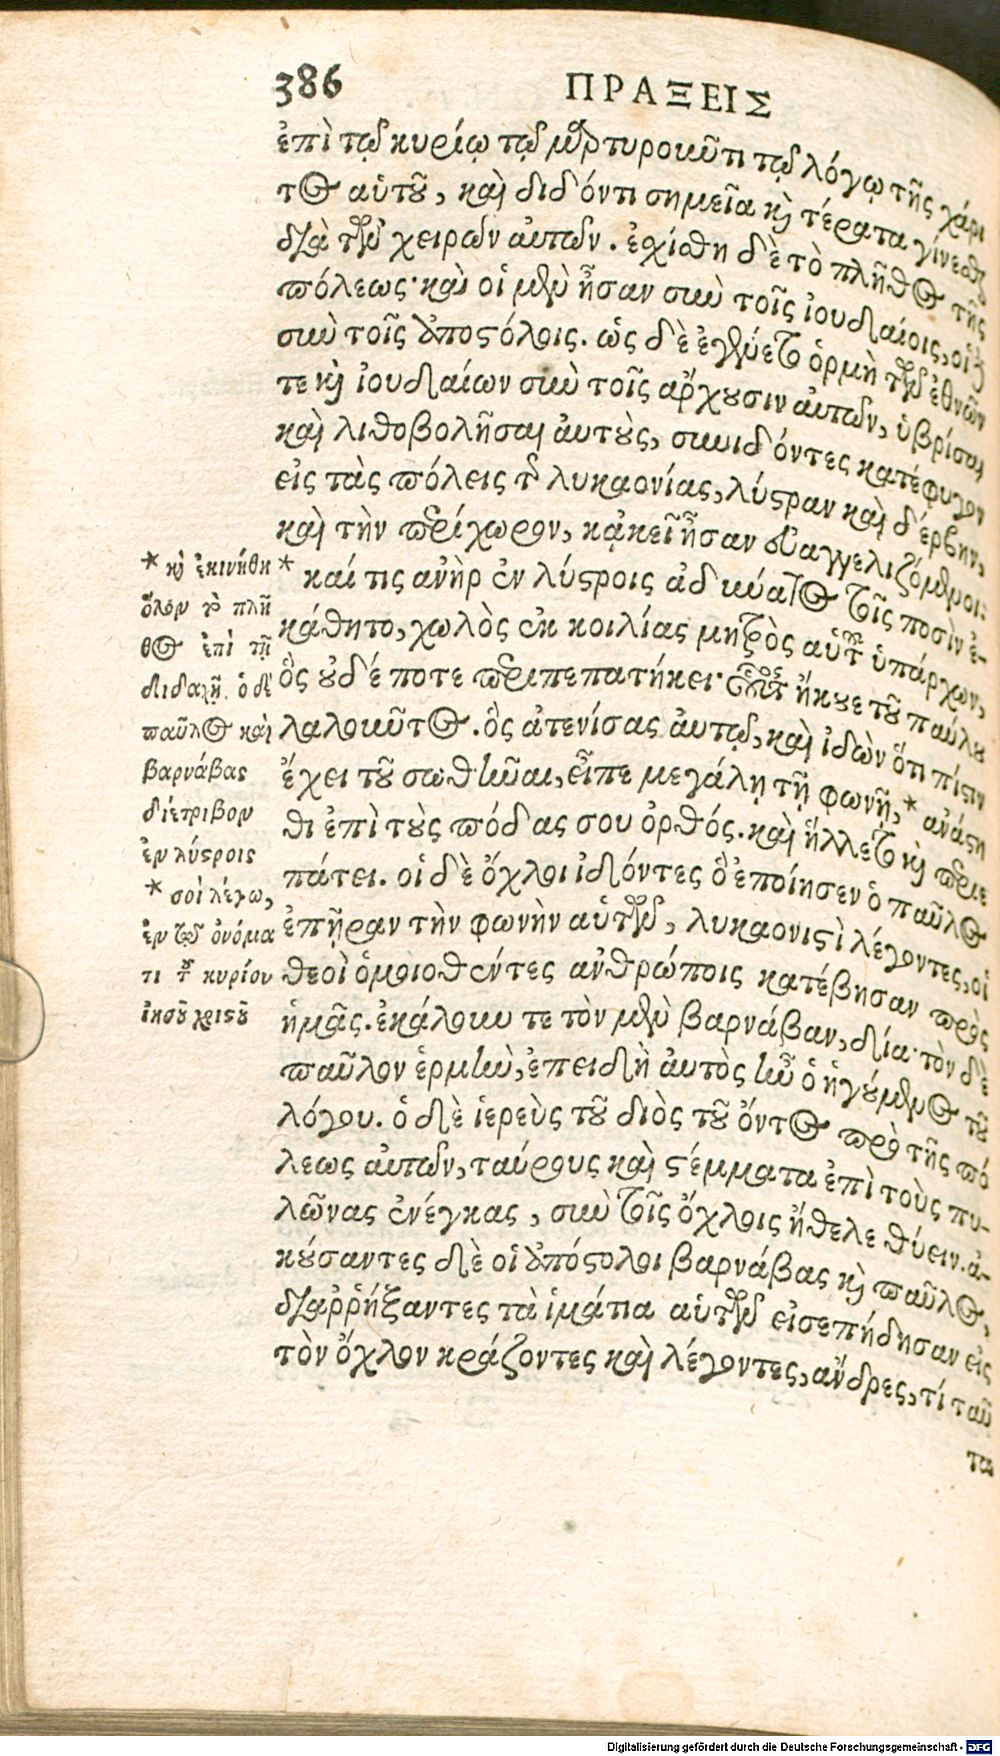 386 ΠΡΑΞΕΙΣ
ἐπὶ τῷ κυρίῳ τῷ μαρτυροῦντι τῷ λόγῳ τῆς χάρι
τος αὑτοῦ, καὶ διδόντι σημεῖα καὶ τέρατα γίνεσθαι
διὰ τῶν χειρῶν αὐτῶν. ἐχίσθη δὲ τὸ πλῆθος τῆς
πόλεως· καὶ οἱ μὲν ἦσαν σὺν τοῖς ἰουδαίοις, οἱ δὲ
σὺν τοῖς ἀποστόλοις. ὡς δὲ ἐγένετο ὁρμὴ τῶν ἐθνῶν
τε καὶ ἰουδαίων σὺν τοῖς ἄρχουσιν αὐτῶν, ὑβρίσαι
καὶ λιθοβολῆσαι ἀυτοὺς, συνιδόντες κατέφυγον
εἰς τὰς πόλεις τῆς λυκαονίας, λύστραν καὶ δέρβην,
καὶ τὴν περίχωρον, κᾀκεῖ ἦσαν εὐαγγελιζόμενοι:
* καί τις ανὴρ ἐν λύστροις ἀδύνατος τοῖς ποσὶν ἐ-
κάθητο, χωλὸς ἐκ κοιλίας μητρὸς αὑτοῦ ὑπάρχων,
ὃς οὐδέ ποτε περιπεπατήκει· οὗτος ἤκουε τοῦ παύλου
λαλοῦντος. ὃς ἀτενίσας ἀυτῷ, καὶ ἰδὼν ὅτι πίστιν
ἔχει τοῦ σωθῆναι, εἶπε μεγάλῃ τῇ φωνῇ, * ανάστη
θι ἐπὶ τοὺς πόδας σου ὀρθός. καὶ ἥλλετο καὶ περιε
πάτει. οἱ δὲ ὄχλοι ἰδόντες ὃ ἐποίησεν ὁ παῦλος
ἐπῇραν τὴν φωνὴν αὑτῶν, λυκαονιστὶ λέγοντες, οἱ
θεοὶ ὁμοιοθέντες ανθρώποις κατέβησαν πρὸς
ἡμᾶς. ἐκάλουν τε τὸν μὲν βαρνάβαν, δία· τὸν δὲ
παῦλον ἑρμῆν, ἐπειδὴ ἀυτὸς ἦν ὁ ἡγούμενος τοῦ
λόγου. ὁ δὲ ἱερεὺς τοῦ διὸς τοῦ ὄντος πρὸ τῆς πό
λεως αὐτῶν, ταύρους καὶ στέμματα ἐπὶ τοὺς πυ-
λῶνας ἐνέγκας, σὺν τοῖς ὄχλοις ἤθελε θύειν. ἀ-
κούσαντες δὲ οἱ ἀπόστολοι βαρνάβας καὶ παῦλος,
διαῤῥήξαντες τὰ ἱμάτια αὑτῶν εἰσεπήδησαν εἰς
τὸν ὄχλον κράζοντες καὶ λέγοντες, ἄνδρες, τί ταῦ
τα
* καὶ ἐκινήθη
ὅλον τὸ πλῆ
θος ἐπὶ τῇ
διδαχῇ. ὁ δὲ
παῦλος καὶ
βαρνάβας
διέτριβον
ἐν λύστροις
* σοὶ λέγω,
ἐν τῷ ὀνόμα
τι τοῦ κυρίου
ἰησοῦ χριστοῦ
Digitalisierung gefördert durch die Deutsche Forschungsgemeinschaft - DFG